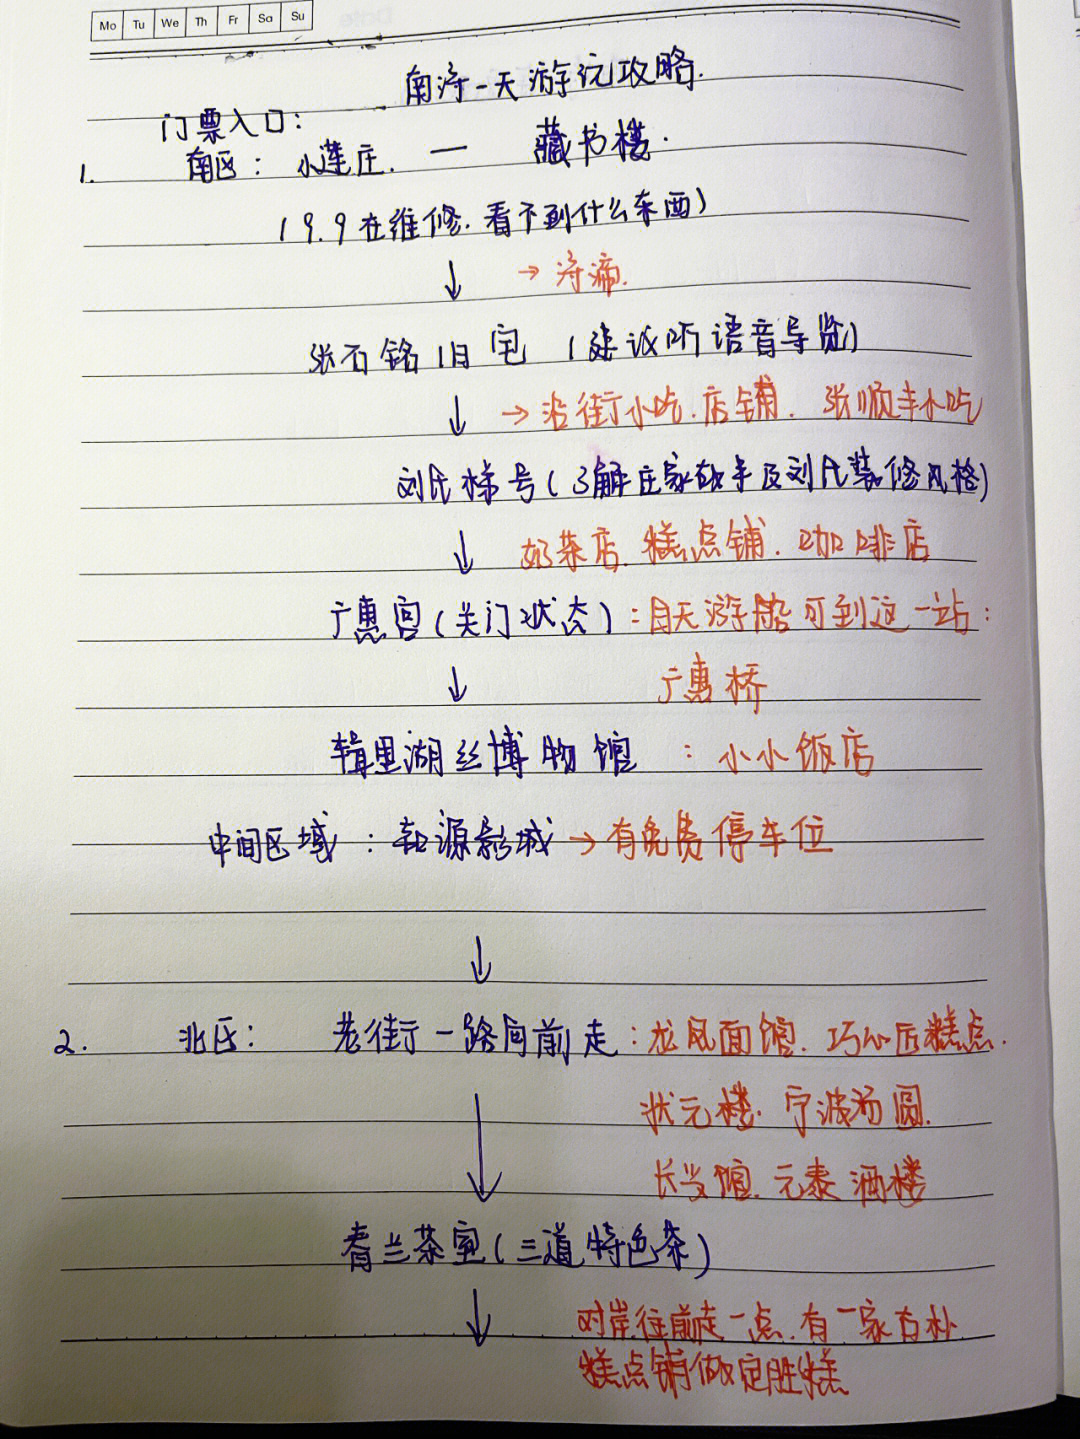 Mo Tu We Th Fr Sa Su
南浔一天游玩攻略.
门票入口:
1. 南区: 小莲庄. — 藏书楼.
(9.9在维修.看不到什么东西)
↓ → 浔滴.
张石铭旧宅 (建议听语音导览)
↓ → 沿街小吃.店铺. 张顺丰小吃
刘氏梯号(了解庄家故事及刘氏装修风格)
↓ 奶茶店. 糕点铺. 咖啡店
广惠宫(关门状态): 白天游船可到这一站:
↓ 广惠桥
辑里湖丝博物馆 : 小小饭店
中间区域 : 和源影城 → 有免费停车位
↓
2. 北区: 老街一路向前走: 龙凤面馆. 巧心匠糕点.
状元楼. 宁波汤圆.
↓
长兴馆. 元泰酒楼
春兰茶室(三道特色茶)
↓ 对岸往前走一点.有一家古朴
糕点铺做定胜糕